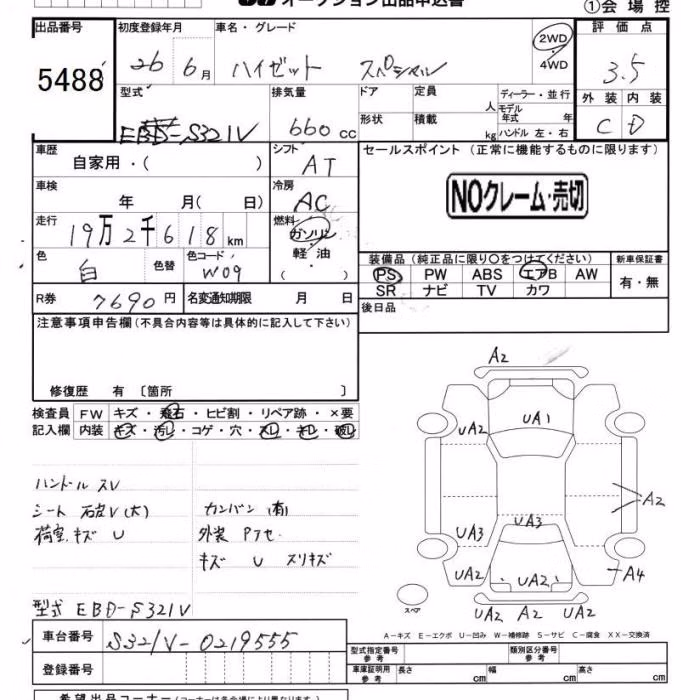 オークション出品申込書
①会場控
出品番号
5488
初度登録年月
26 6月
車名・グレード
ハイゼット スペシャル
2WD
4WD
評価点
3.5
外装 内装
C D
型式
EBD-S321V
排気量
660 cc
ドア
定員
人
形状
積載
kg
ディーラー・並行
モデル年式 年
ハンドル 左・右
車歴
自家用・( )
シフト
AT
セールスポイント (正常に機能するものに限ります)
NOクレーム・売切
車検
年 月( 日)
冷房
AC
走行
19万2千618 km
燃料
ガソリン
軽油
( )
色
白
色替
色コード
W09
装備品 (純正品に限り○をつけてください)
PS PW ABS エアB AW
SR ナビ TV カワ
新車保証書
有・無
R券
7690円
名変通知期限 月 日
後日品
注意事項申告欄(不具合内容等は具体的に記入して下さい)
修復歴 有 〔箇所 〕
検査員記入欄
FW キズ・飛石・ヒビ割・リペア跡・×要
内装 キズ・汚レ・コゲ・穴・スレ・キレ・破レ
ハンドル スレ
荷室 キズ U
カンバン (有)
キズ U スリキズ
型式 EBD-S321V
A2
UA1
UA2
A2
UA3
UA3
UA2
UA2
A4
UA2 A2 UA2
スペア
A-キズ E-エクボ U-凹み W-補修跡 S-サビ C-腐食 XX-交換済
車台番号
S321V-0219555
登録番号
型式指定番号
参考
類別区分番号
参考
車庫証明用
参考
長さ cm
幅 cm
高さ cm
希望出品コーナー(コーナーは各会場により異なります。)